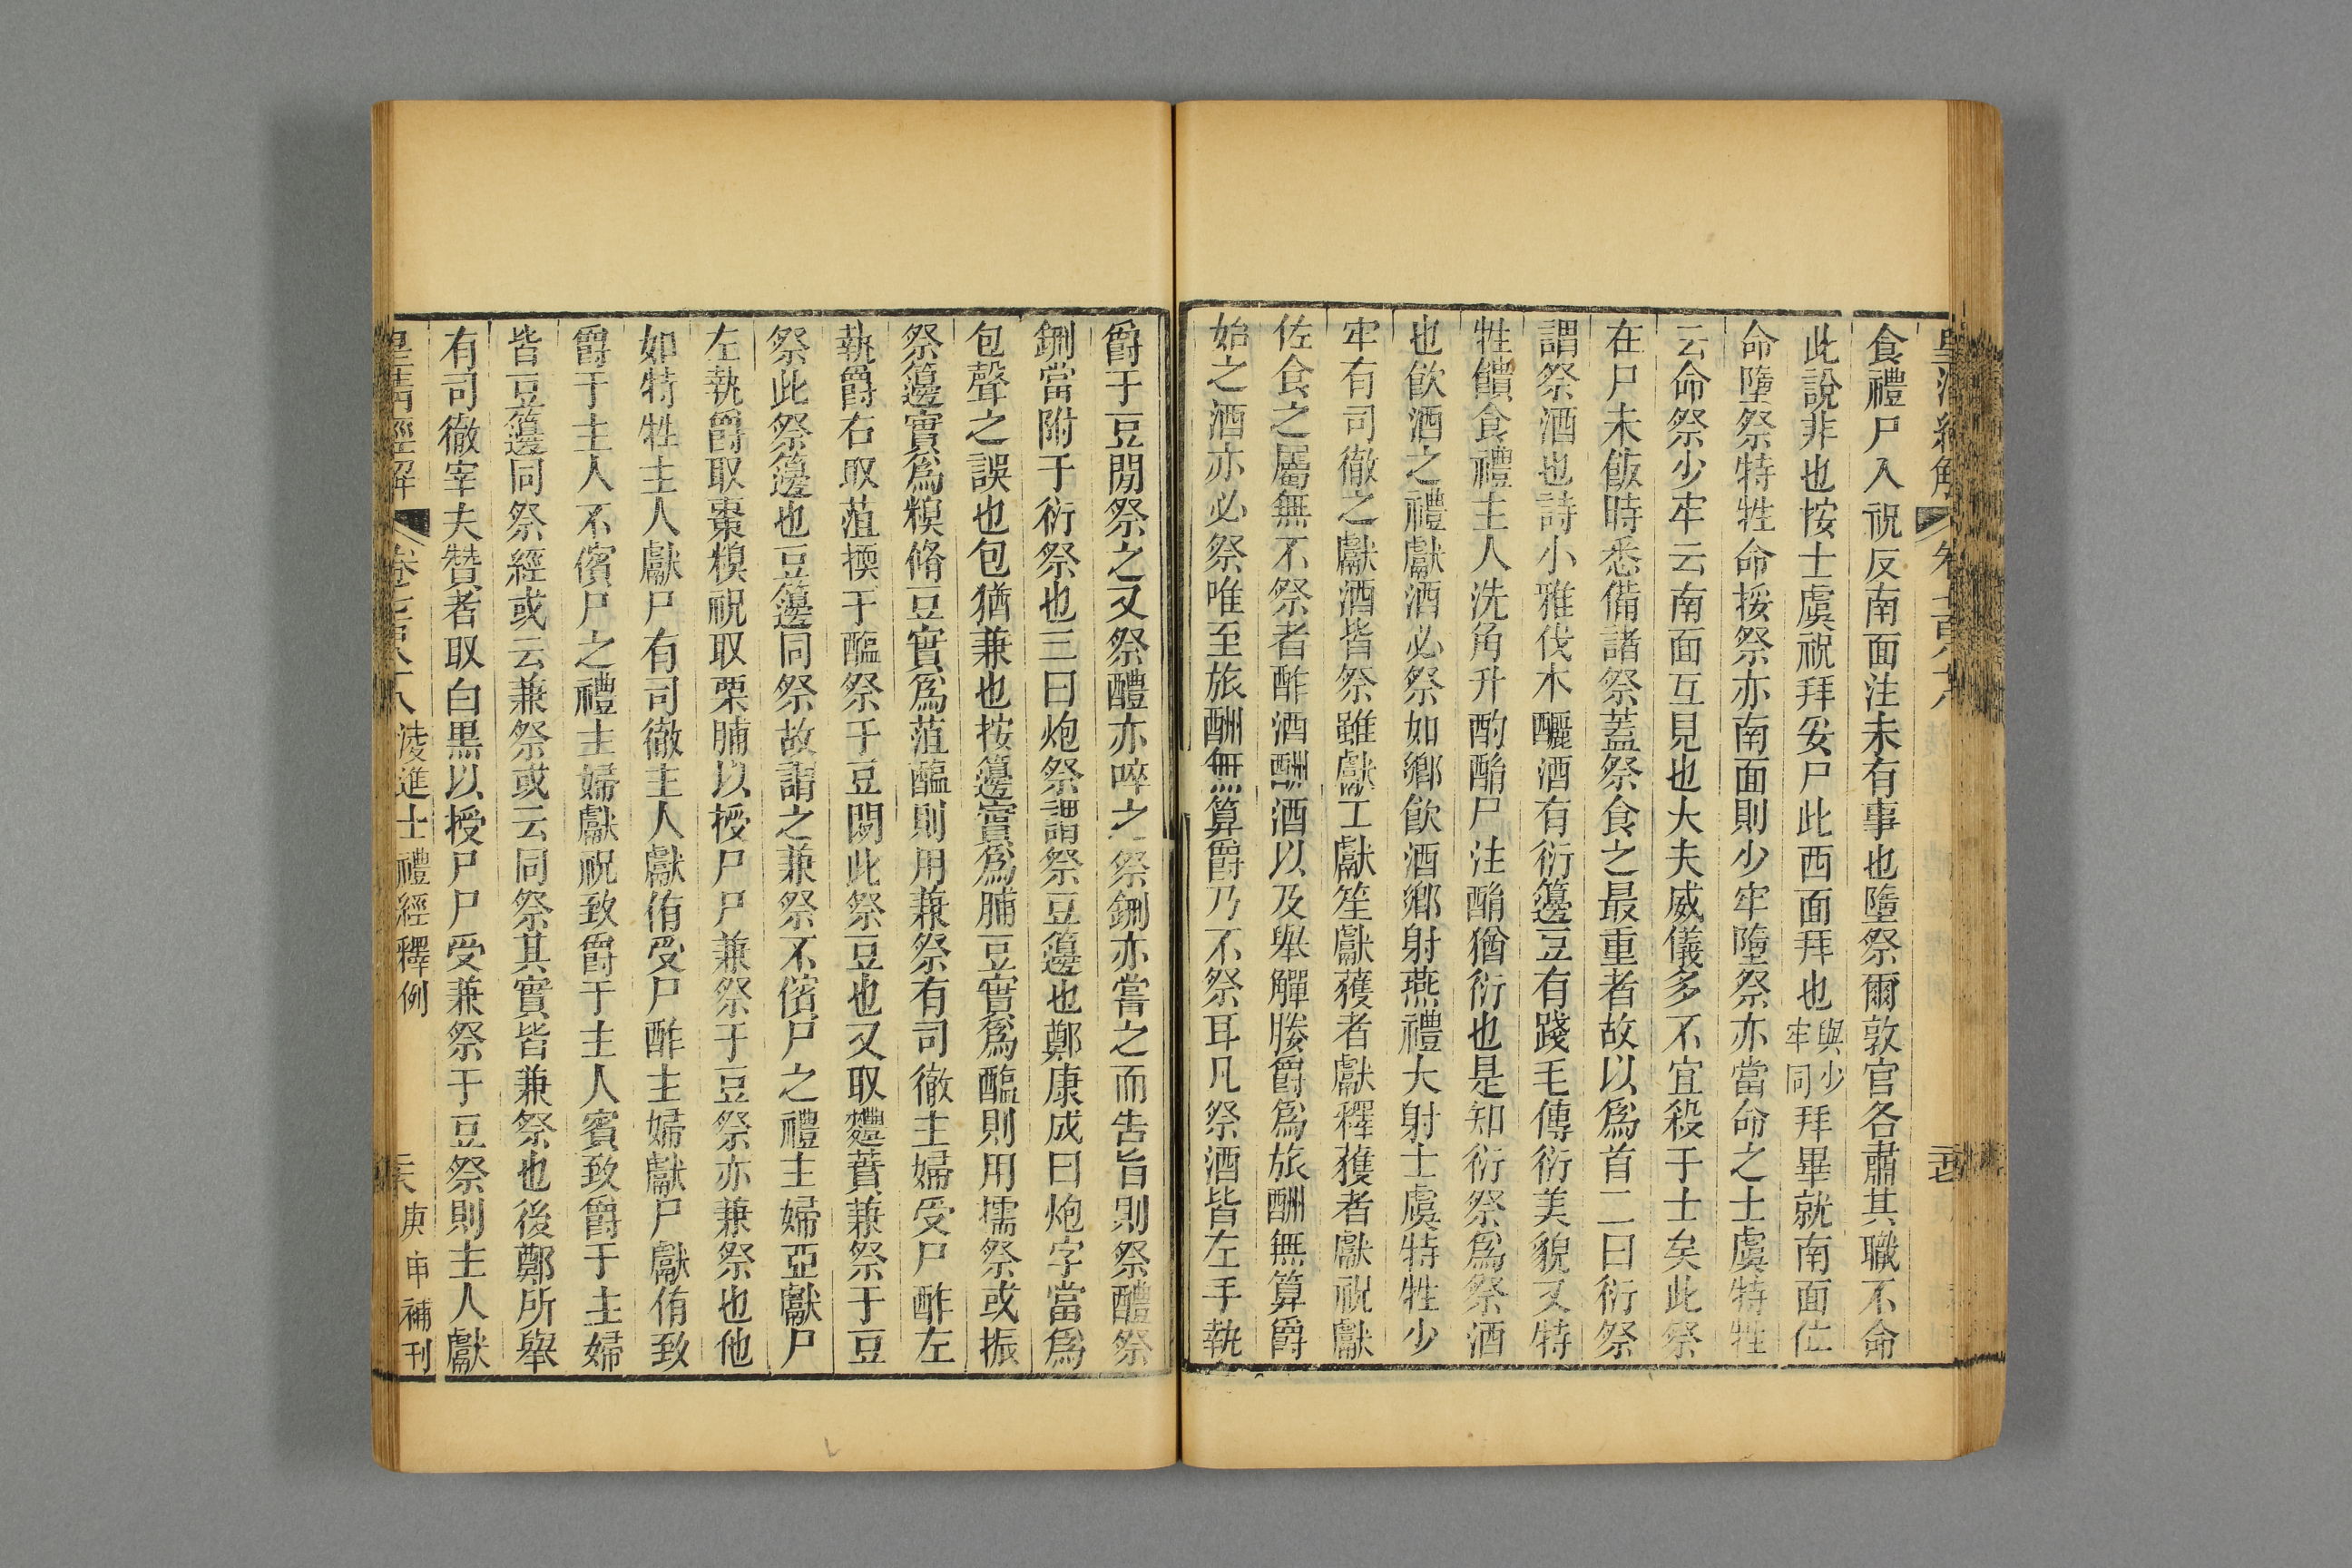 食禮尸入祝反南面注未有事也墮祭爾敦官各肅其職不命
此說非也按士虞祝拜妥尸此西面拜也與少牢同拜畢就南面位
命墮祭特牲命挼祭亦南面則少牢墮祭亦當命之士虞特牲
云命祭少牢云南面互見也大夫威儀多不宜殺于士矣此祭
在尸未飯時悉備諸祭蓋祭食之最重者故以爲首二曰衍祭
謂祭酒也詩小雅伐木釃酒有衍籩豆有踐毛傳衍美貌又特
牲饋食禮主人洗角升酌酳尸注酳猶衍也是知衍祭爲祭酒
也飲酒之禮獻酒必祭如鄉飲酒鄉射燕禮大射士虞特牲少
牢有司徹之獻酒皆祭雖獻工獻笙獻獲者獻釋獲者獻祝獻
佐食之屬無不祭者酢酒酬酒以及舉觶媵爵爲旅酬無算爵
始之酒亦必祭唯至旅酬無算爵乃不祭耳凡祭酒皆左手執
爵于豆閒祭之又祭醴亦啐之祭鉶亦嘗之而告旨則祭醴祭
鉶當附于衍祭也三曰炮祭謂祭豆籩也鄭康成曰炮字當爲
包聲之誤也包猶兼也按籩實爲脯豆實爲醢則用擩祭或振
祭籩實爲糗脩豆實爲菹醢則用兼祭有司徹主婦受尸酢左
執爵右取菹擩于醢祭于豆閒此祭豆也又取麷蕡兼祭于豆
祭此祭籩也豆籩同祭故謂之兼祭不儐尸之禮主婦亞獻尸
左執爵取棗糗祝取栗脯以授尸尸兼祭于豆祭亦兼祭也他
如特牲主人獻尸有司徹主人獻侑受尸酢主婦獻尸獻侑致
爵于主人不儐尸之禮主婦獻祝致爵于主人賓致爵于主婦
皆豆籩同祭經或云兼祭或云同祭其實皆兼祭也後鄭所舉
有司徹宰夫贊者取白黑以授尸尸受兼祭于豆祭則主人獻
皇清經解 卷七百八十八 淩進士禮經釋例 庚申補刊